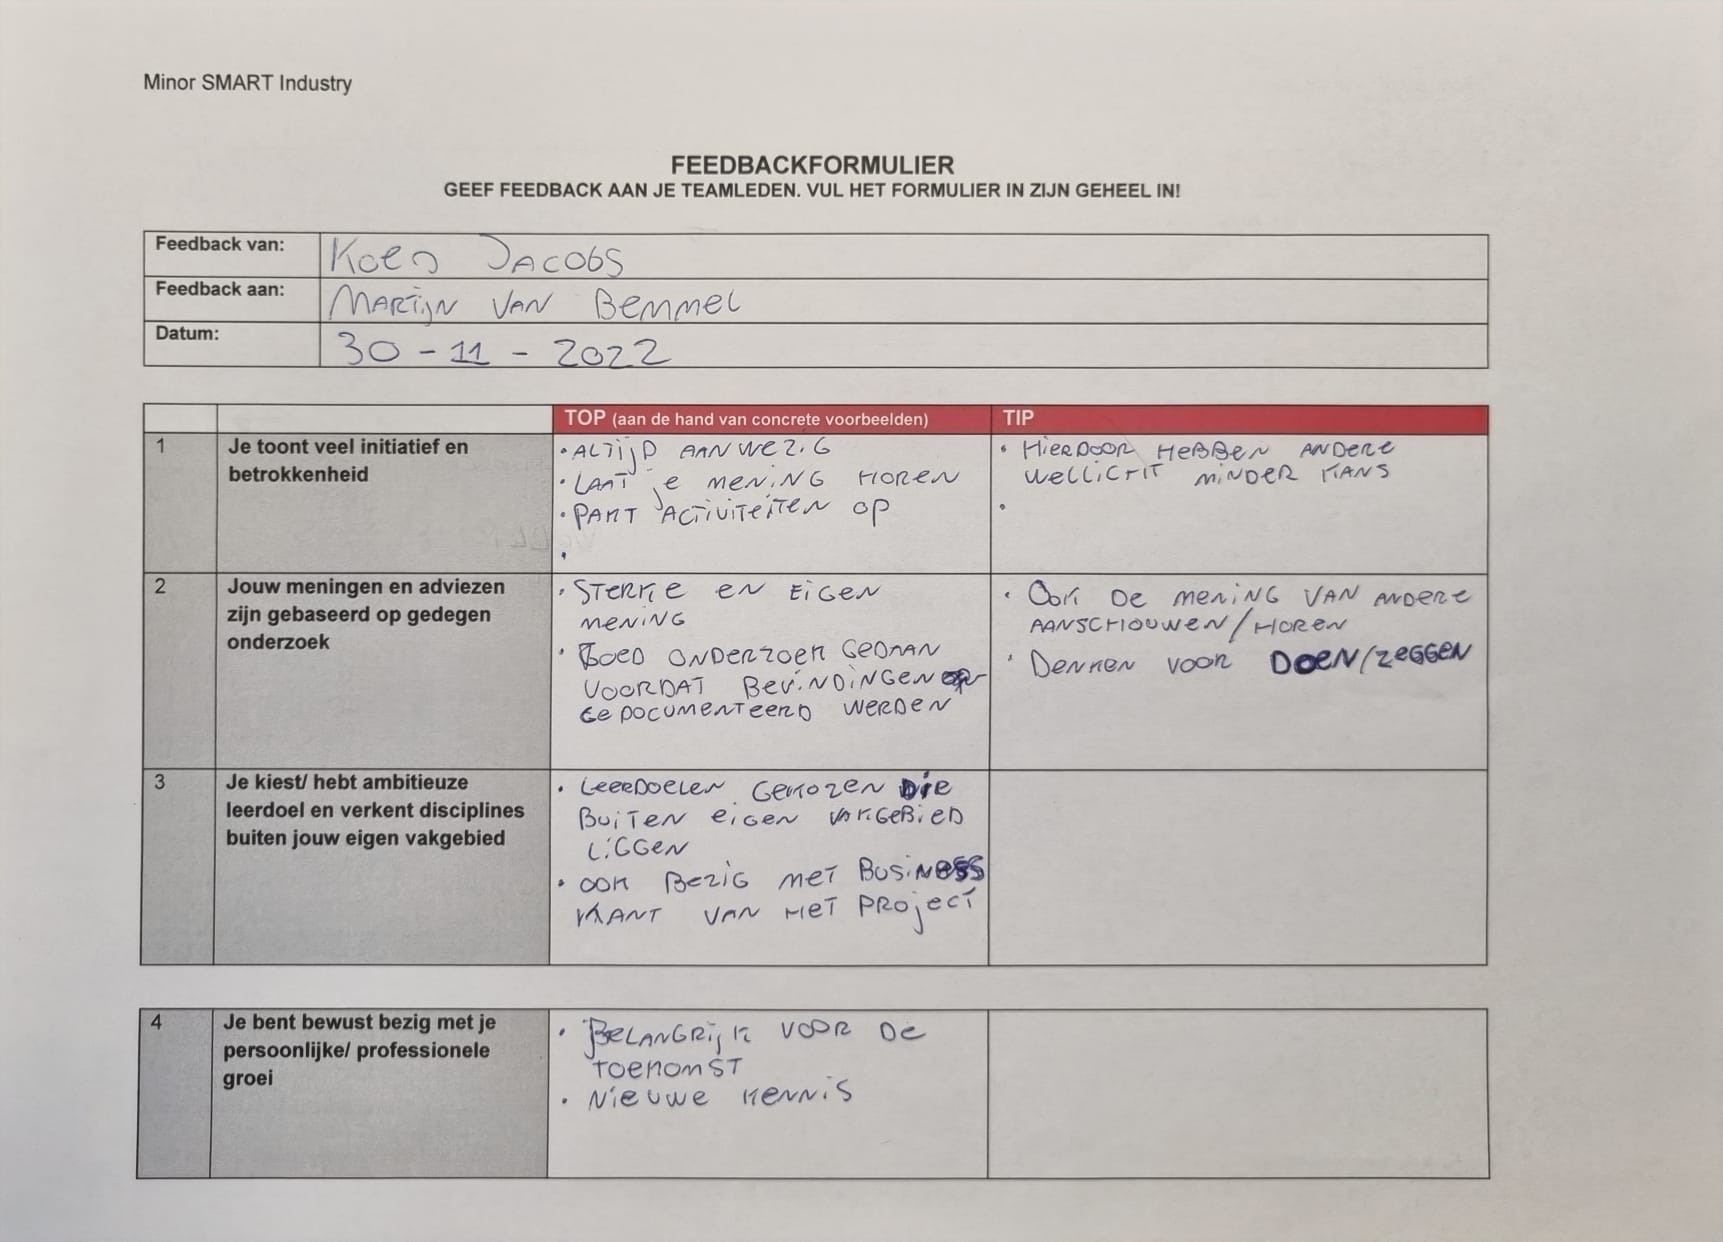 Minor SMART Industry
FEEDBACKFORMULIER
GEEF FEEDBACK AAN JE TEAMLEDEN. VUL HET FORMULIER IN ZIJN GEHEEL IN!
Feedback van: Koen Jacobs
Feedback aan: Martijn van Bemmel
Datum: 30-11-2022
TOP (aan de hand van concrete voorbeelden) TIP
1 Je toont veel initiatief en
betrokkenheid
• ALTIJD AANWEZIG
• LAAT JE MENING HOREN
• PAKT ACTIVITEITEN OP
•
• HIERDOOR HEBBEN ANDERE
WELLICHT MINDER KANS
•
2 Jouw meningen en adviezen
zijn gebaseerd op gedegen
onderzoek
• STERKE EN EIGEN
MENING
• GOED ONDERZOEK GEDAAN
VOORDAT BEVINDINGEN
GEDOCUMENTEERD WERDEN
• OOK DE MENING VAN ANDERE
AANSCHOUWEN/HOREN
• DENKEN VOOR DOEN/ZEGGEN
3 Je kiest/ hebt ambitieuze
leerdoel en verkent disciplines
buiten jouw eigen vakgebied
• LEERDOELEN GEKOZEN DIE
BUITEN EIGEN VAKGEBIED
LIGGEN
• OOK BEZIG MET BUSINESS
KANT VAN HET PROJECT
4 Je bent bewust bezig met je
persoonlijke/ professionele
groei
• BELANGRIJK VOOR DE
TOEKOMST
• NIEUWE KENNIS